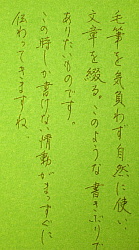 毛筆を気負わず自然に使い
文章を綴る。このような書きぶりで
ありたいものです。
この時しか書けない情動がまっすぐに
伝わってきますね